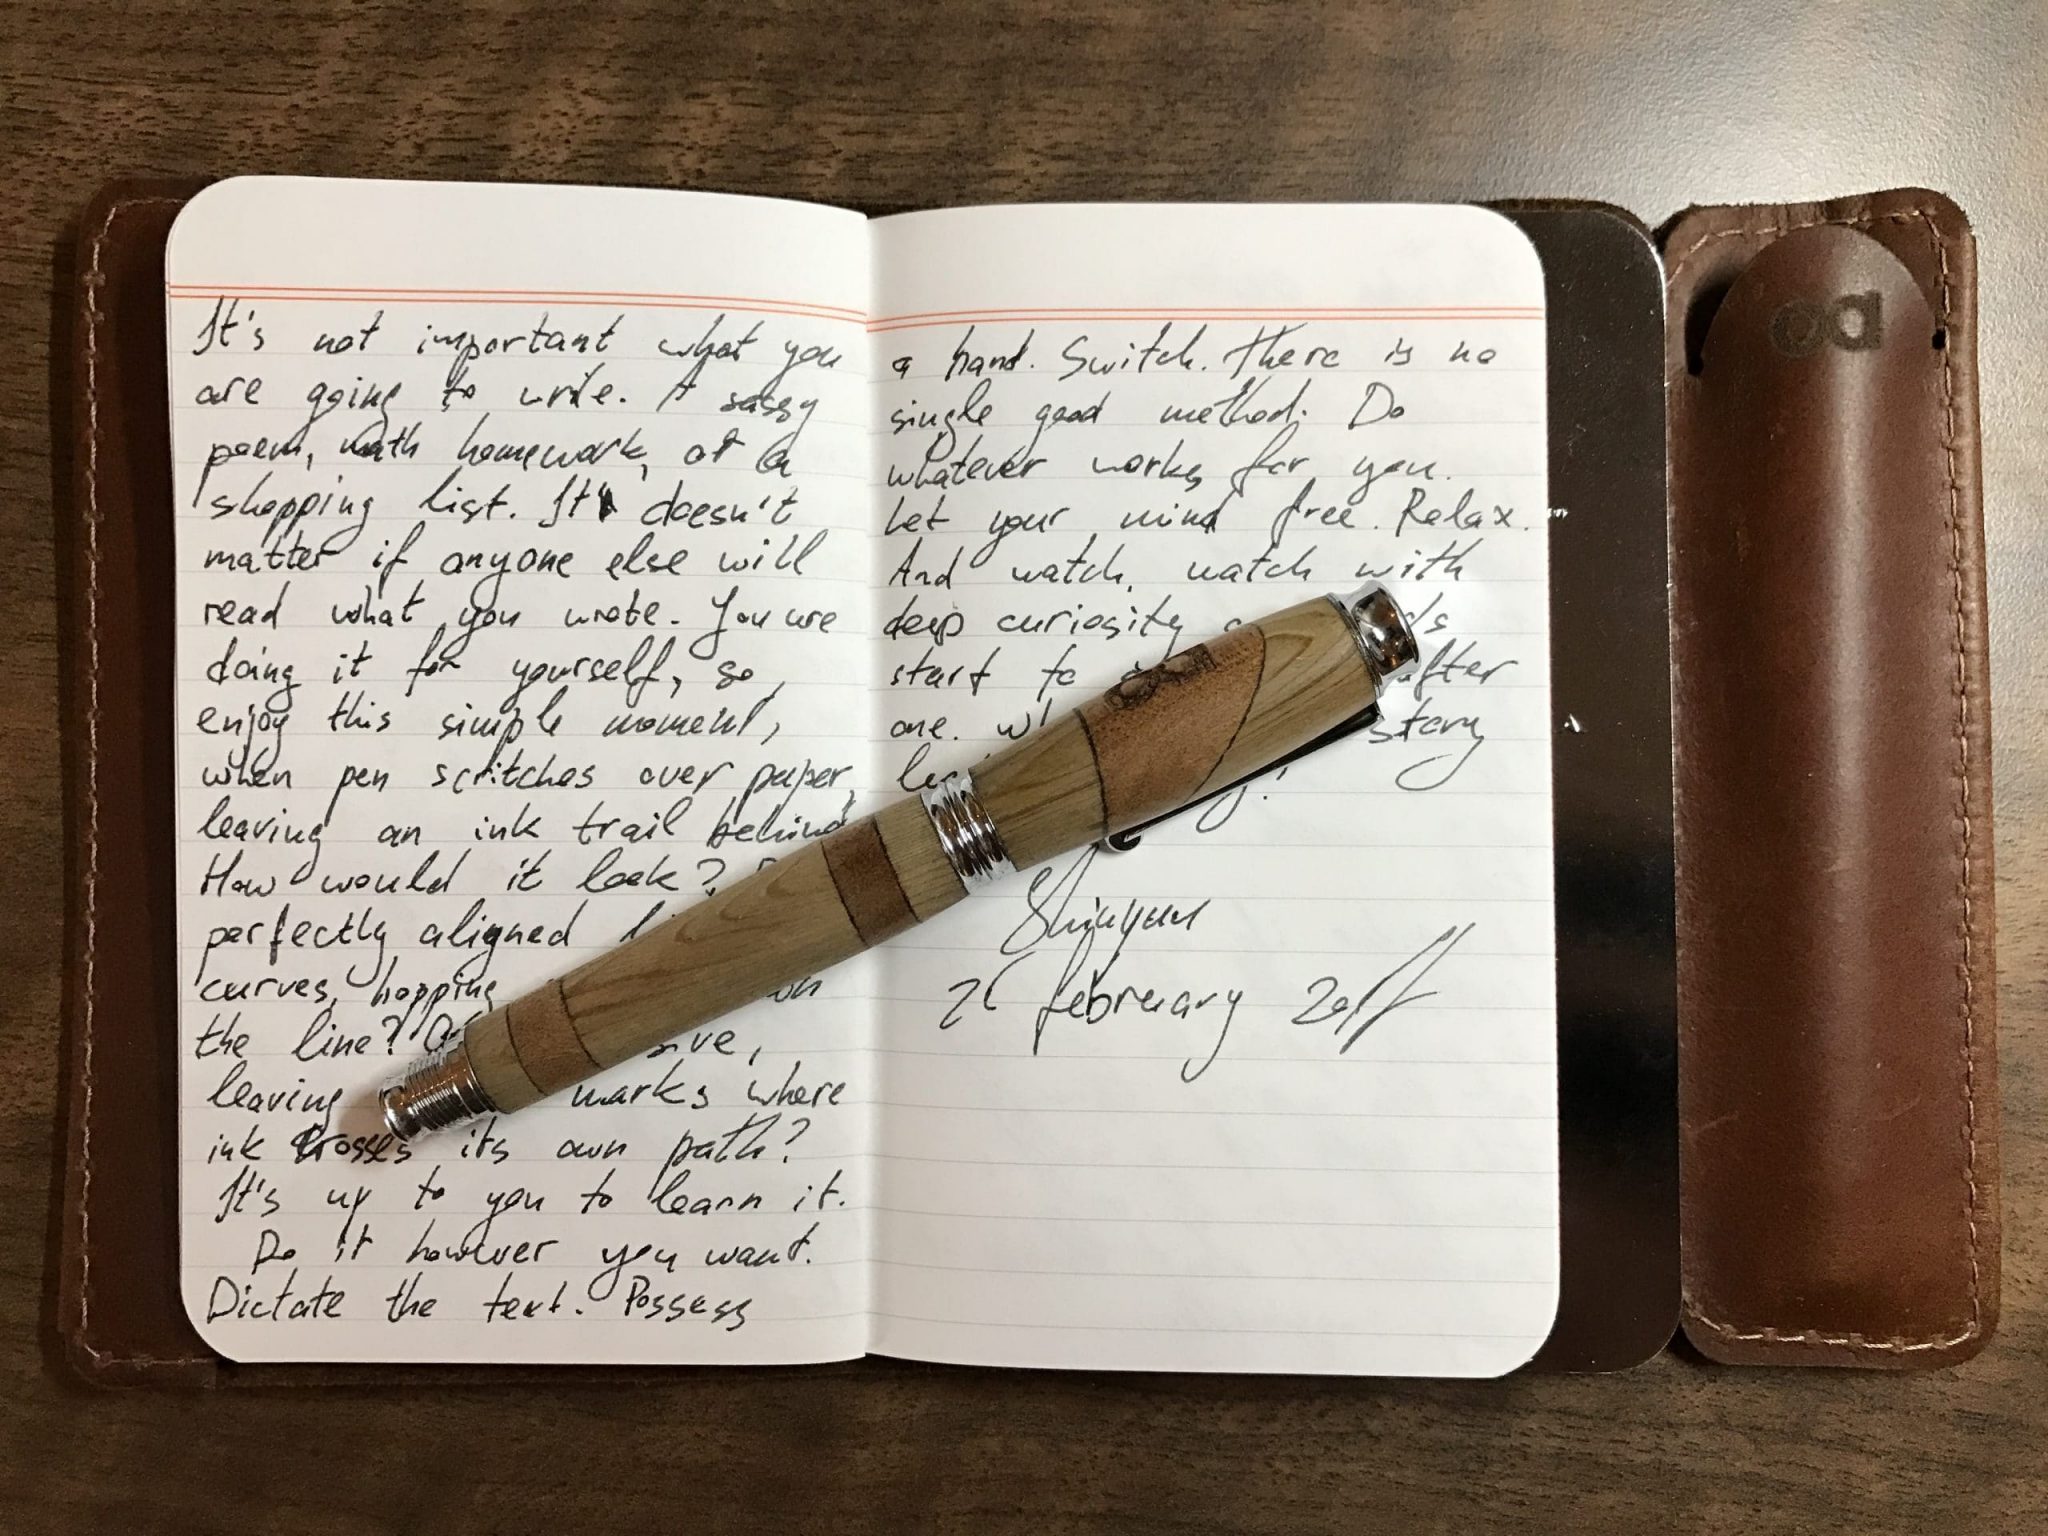 It's not important what you
are going to write. A sassy
poem, math homework, or a
shopping list. It doesn't
matter if anyone else will
read what you wrote. You are
doing it for yourself, so
enjoy this simple moment,
when pen scritches over paper,
leaving an ink trail behind.
How would it look?
perfectly aligned
curves, hopping on
the line?
leaving marks where
ink crosses its own path?
It's up to you to learn it.
Do it however you want.
Dictate the text. Possess
a hand. Switch. There is no
single good method. Do
whatever works for you.
Let your mind free. Relax.
And watch, watch with
deep curiosity
start to after
one. story
february